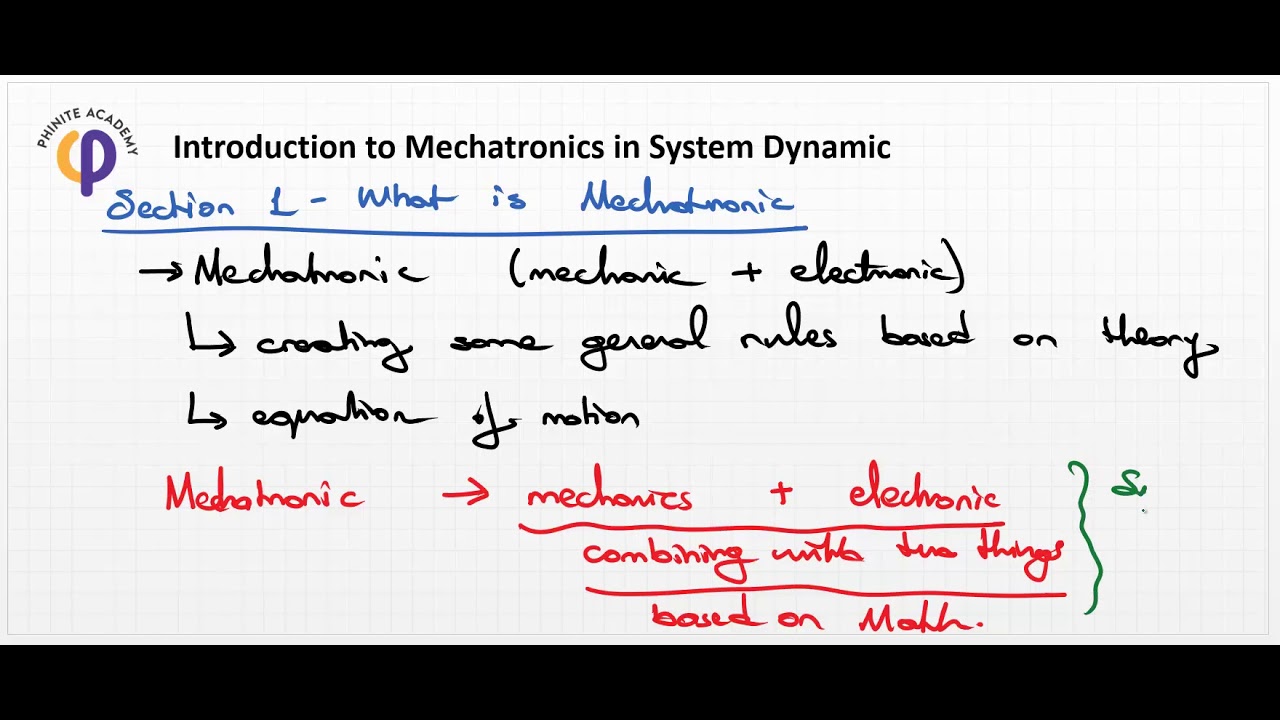 PHINITE ACADEMY
Introduction to Mechatronics in System Dynamic
Section 1 - What is Mechatronic
→ Mechatronic (mechanic + electronic)
↳ creating some general rules based on theory,
↳ equation of motion
Mechatronic → mechanics + electronic
combining with two things
based on Math.